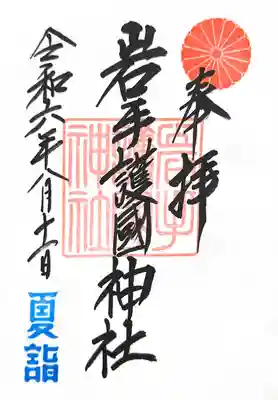 奉拝
岩手護國神社
令和六年八月十一日
夏詣
神社